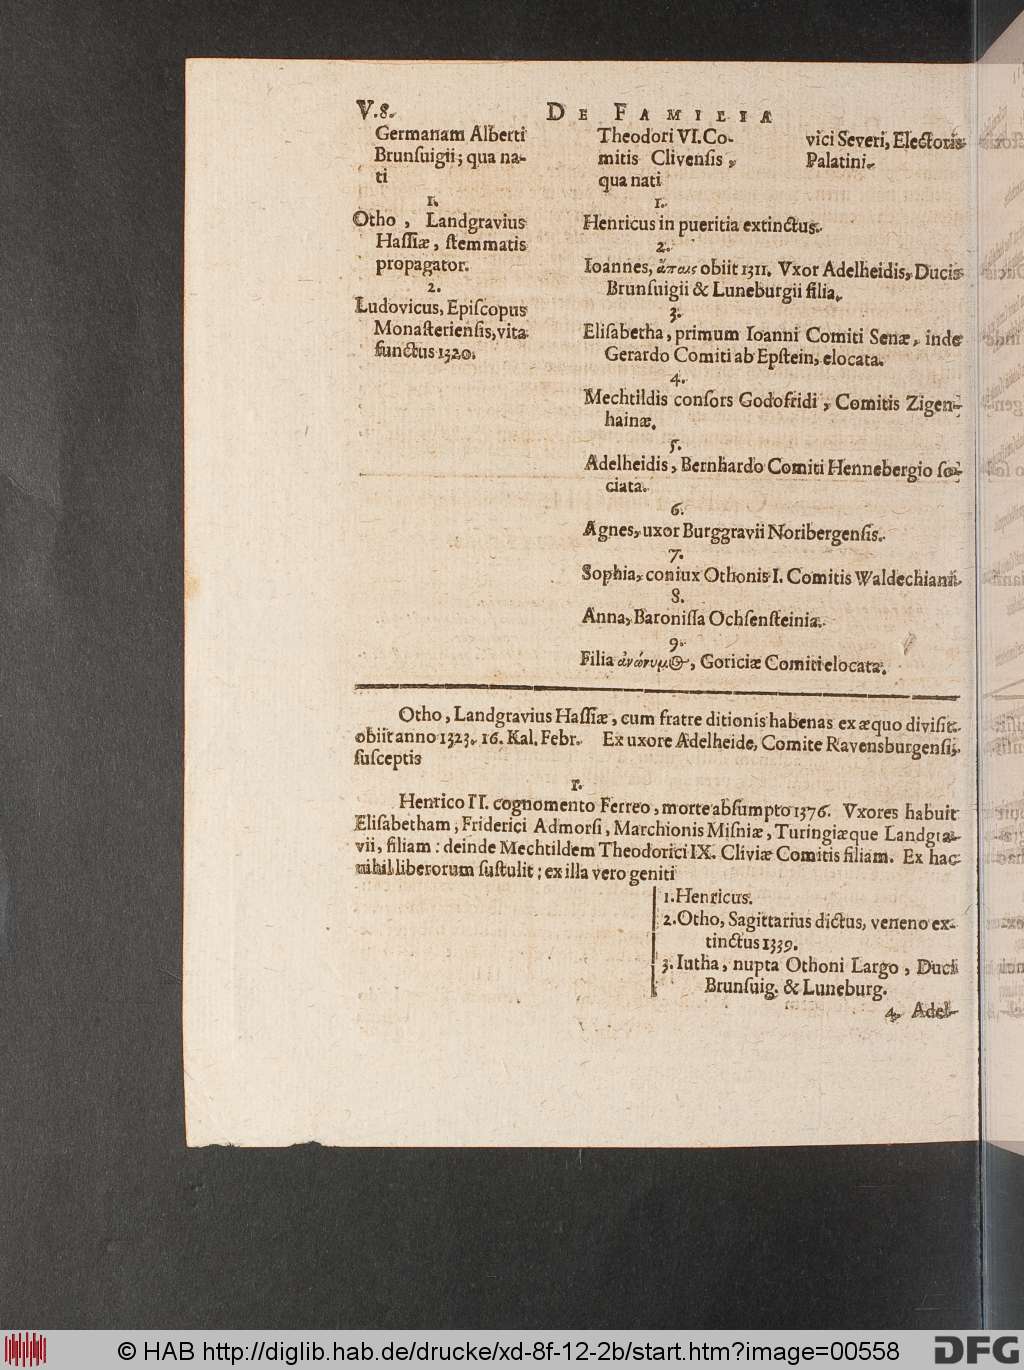 V. 8.
DE FAMILIA
Germanam Alberti
Brunſuigii; qua na-
ti
1.
Otho, Landgravius
Haſſiæ, ſtemmatis
propagator.
2.
Ludovicus, Epiſcopus
Monaſterienſis, vita
functus 1320.
Theodori VI. Co-
mitis Clivenſis,
qua nati
vici Severi, Electoris
Palatini.
1.
Henricus in pueritia extinctus.
2.
Ioannes, ἄπαις obiit 1311. Vxor Adelheidis, Ducis
Brunſuigii & Luneburgii filia.
3.
Eliſabetha, primum Ioanni Comiti Senæ, inde
Gerardo Comiti ab Epſtein, elocata.
4.
Mechtildis conſors Godofridi, Comitis Zigen-
hainæ.
5.
Adelheidis, Bernhardo Comiti Hennebergio ſo-
ciata.
6.
Agnes, uxor Burggravii Noribergenſis.
7.
Sophia, coniux Othonis I. Comitis Waldechiani.
8.
Anna, Baroniſſa Ochſenſteinia.
9.
Filia ἀνώνυμος, Goriciæ Comiti elocata.
Otho, Landgravius Haſſiæ, cum fratre ditionis habenas ex æquo diviſit.
obiit anno 1323. 16. Kal. Febr. Ex uxore Adelheide, Comite Ravensburgenſi,
ſuſceptis
1.
Henrico II. cognomento Ferreo, morte abſumpto 1376. Vxores habuit
Eliſabetham, Friderici Admorſi, Marchionis Miſniæ, Turingiæque Landgra-
vii, filiam: deinde Mechtildem Theodorici IX. Cliviæ Comitis filiam. Ex hac
nihil liberorum ſuſtulit; ex illa vero geniti
1. Henricus.
2. Otho, Sagittarius dictus, veneno ex-
tinctus 1339.
3. Iutha, nupta Othoni Largo, Duci
Brunſuig. & Luneburg.
4. Adel-
© HAB http://diglib.hab.de/drucke/xd-8f-12-2b/start.htm?image=00558
DFG